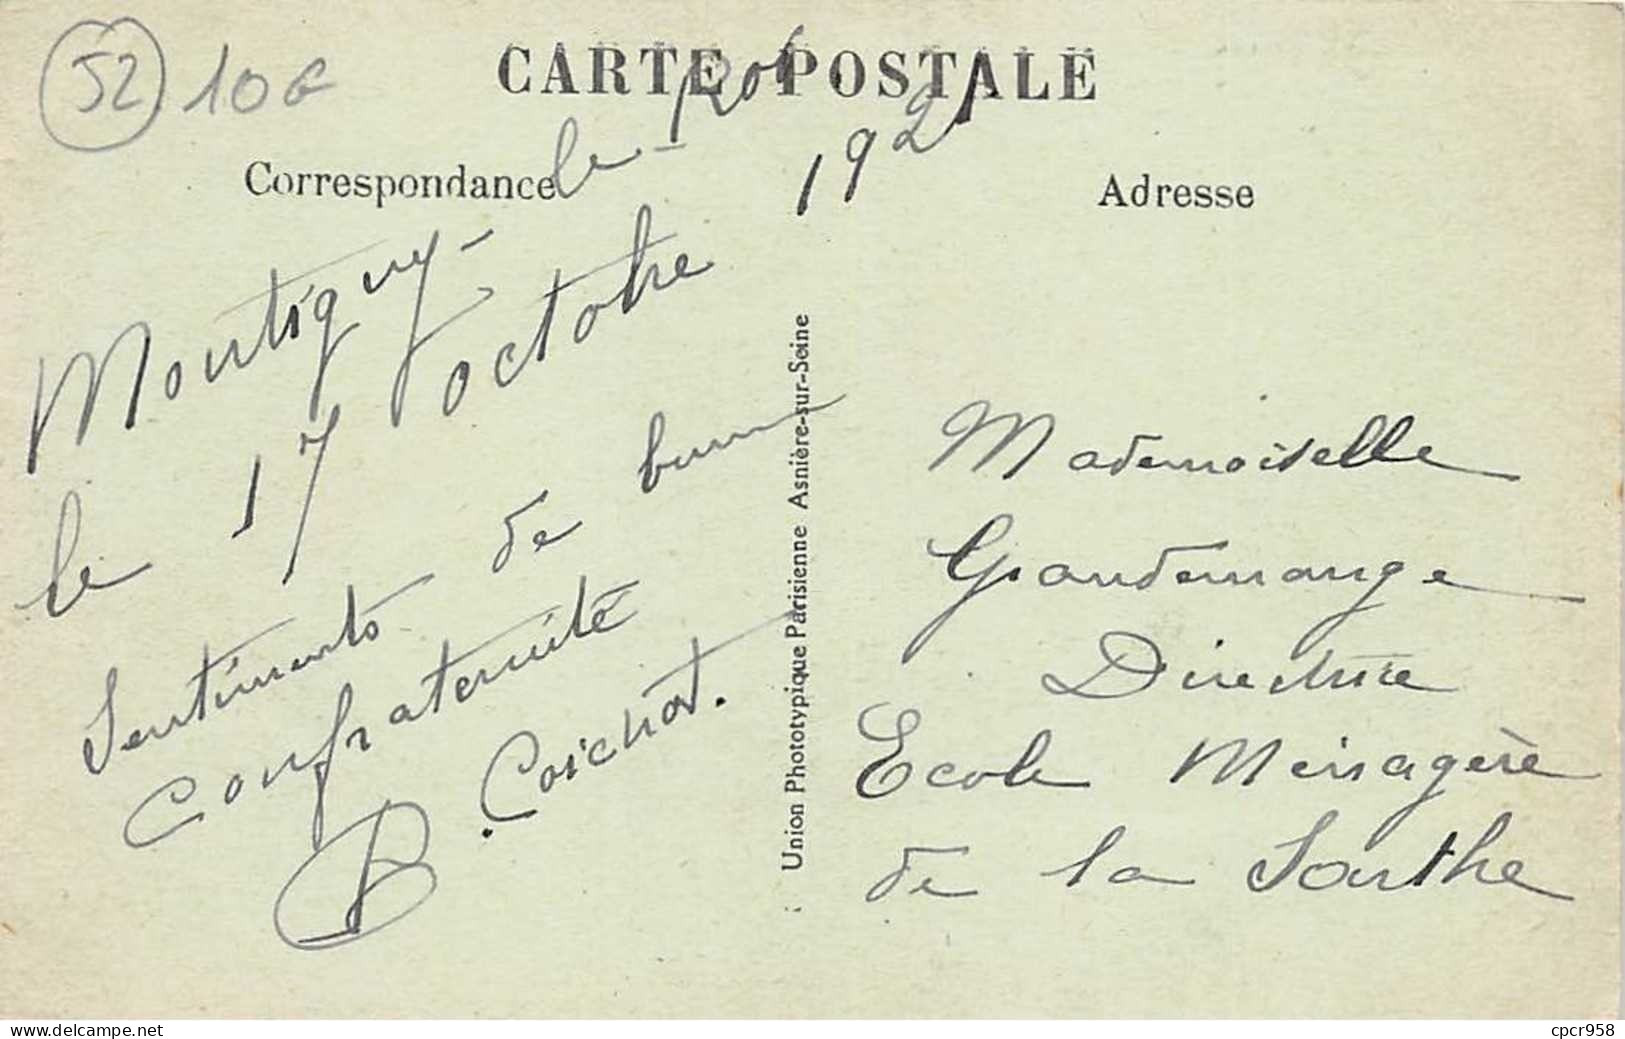 52 10€
CARTE POSTALE
Correspondance
Adresse
Montigny-le-Roi
le 17 octobre 1921
Sentiments de bonne
Confraternité
B. Coichot.
Union Phototypique Parisienne Asnière-sur-Seine
Mademoiselle
Grandemange
Directrice
Ecole Ménagère
de la Sarthe
delcampe.net
cpcr958